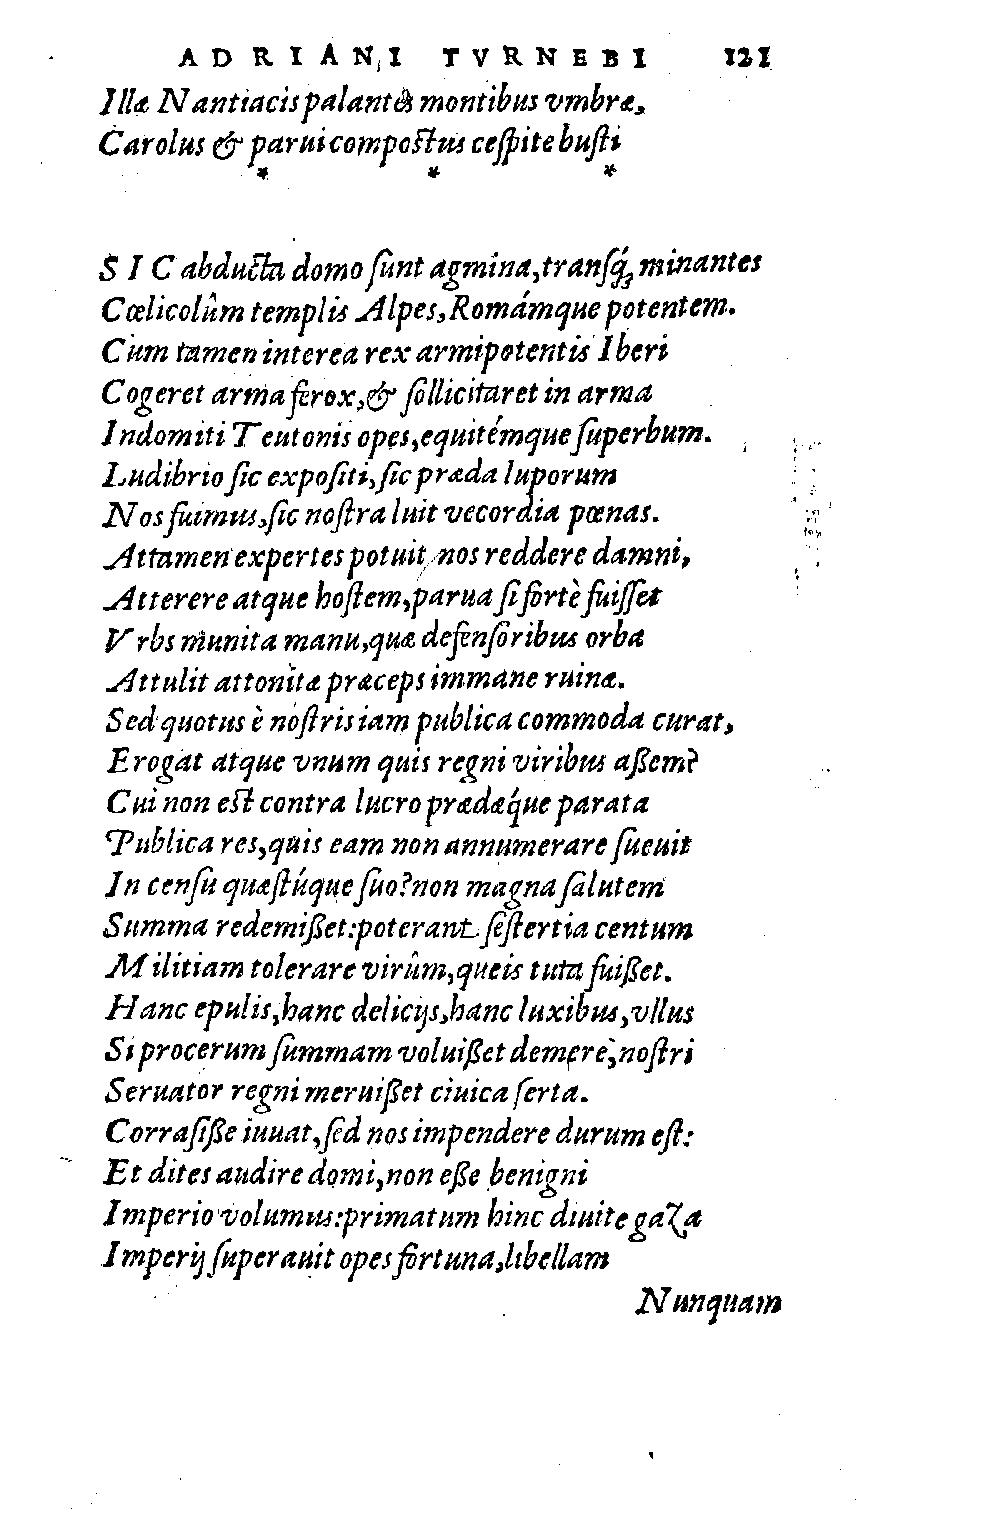 ADRIANI TVRNEBI 121
Illæ Nantiacis palantes montibus vmbræ,
Carolus & parui compostus cespite busti
* * *
SIC abducta domo sunt agmina, transq́; minantes
Cœlicolûm templis Alpes, Romámque potentem.
Cum tamen interea rex armipotentis Iberi
Cogeret arma ferox, & sollicitaret in arma
Indomiti Teutonis opes, equitémque superbum.
Ludibrio sic expositi, sic præda luporum
Nos fuimus, sic nostra luit vecordia pœnas.
Attamen expertes potuit nos reddere damni,
Atterere atque hostem, parua si fortè fuisset
Vrbs munita manu, quæ defensoribus orba
Attulit attonitæ præceps immane ruinæ.
Sed quotus è nostris iam publica commoda curat,
Erogat atque vnum quis regni viribus aßem?
Cui non est contra lucro prædæq́ue parata
Publica res, quis eam non annumerare sueuit
In censu quæstúque suo? non magna salutem
Summa redemißet: poterant sestertia centum
Militiam tolerare virûm, queis tuta fuißet.
Hanc epulis, hanc delicijs, hanc luxibus, vllus
Si procerum summam voluißet demere, nostri
Seruator regni meruißet ciuica serta.
Corrasiße iuuat, sed nos impendere durum est:
Et dites audire domi, non eße benigni
Imperio volumus: primatum hinc diuite gaza
Imperij superauit opes fortuna, libellam
Nunquam